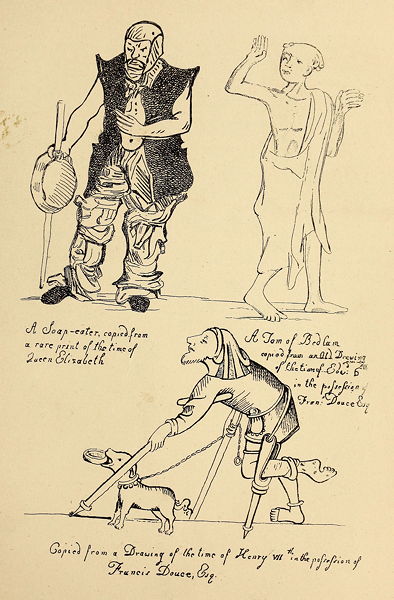 A Soap-eater, copied from
a rare print of the time of
Queen Elizabeth
A Tom of Bedlam
copied from an Old Drawing
of the time of Edw:
in the possession of
Fran: Douce Esq
Copied from a Drawing of the time of Henry VII th in the possession of
Francis Douce, Esq.